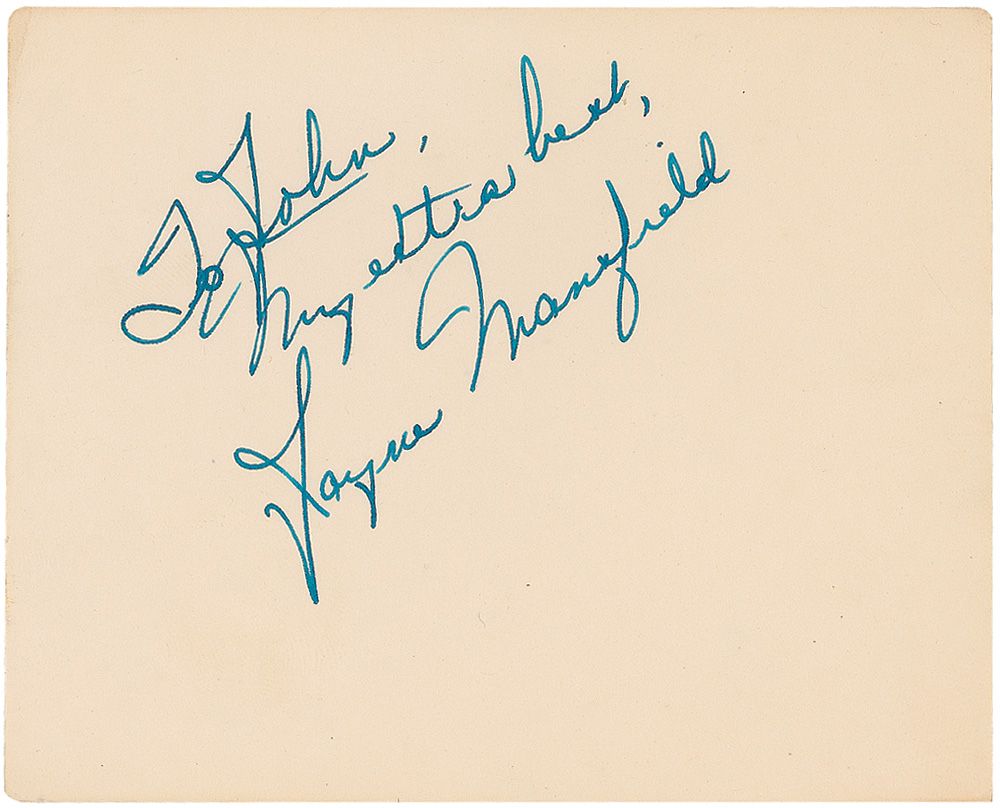 To John,
My extra best,
Jayne Mansfield